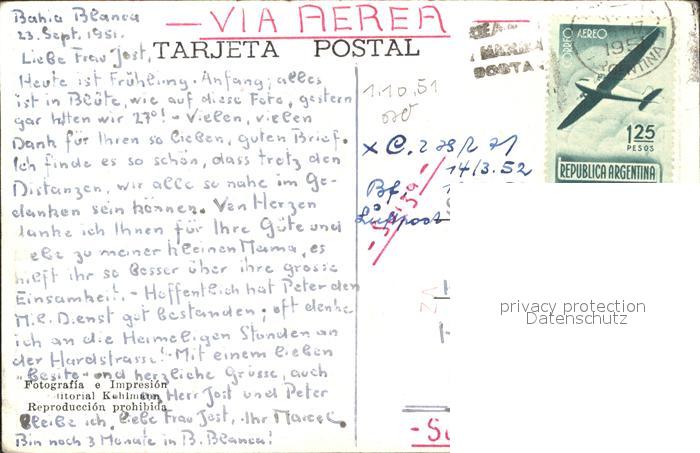 Bahia Blanca
23. Sept. 1951.
— VIA AEREA
TARJETA POSTAL
Liebe Frau Jost,
Heute ist Frühling. Anfang; alles
ist in Blüte, wie auf diese Foto, gestern
gar hatten wir 27°! - Vielen, vielen
Dank für Ihren so lieben, guten Brief.
Ich finde es so schön, dass trotz den
Distanzen, wir alle so nahe im Ge-
danken sein können. Von Herzen
danke ich Ihnen für Ihre Güte und
Liebe zu meiner kleinen Mama, es
hilft ihr so besser über ihre grosse
Einsamkeit. - Hoffentlich hat Peter den
M.C. Dienst gut bestanden; oft denke
ich an die Heimeligen Stunden an
der Hardstrasse! Mit einem lieben
"Besite" und herzliche Grüsse, auch
Herr Jost und Peter
Bleibe ich, liebe Frau Jost, Ihr Marcel.
Bin noch 3 Monate in B. Blanca!
Fotografía e Impresión
Editorial Kohlmann
Reproducción prohibida
1.10.51
14/3.52
Bf.
Luftpost
CORREO AEREO
1 25
PESOS
REPUBLICA ARGENTINA
privacy protection
Datenschutz